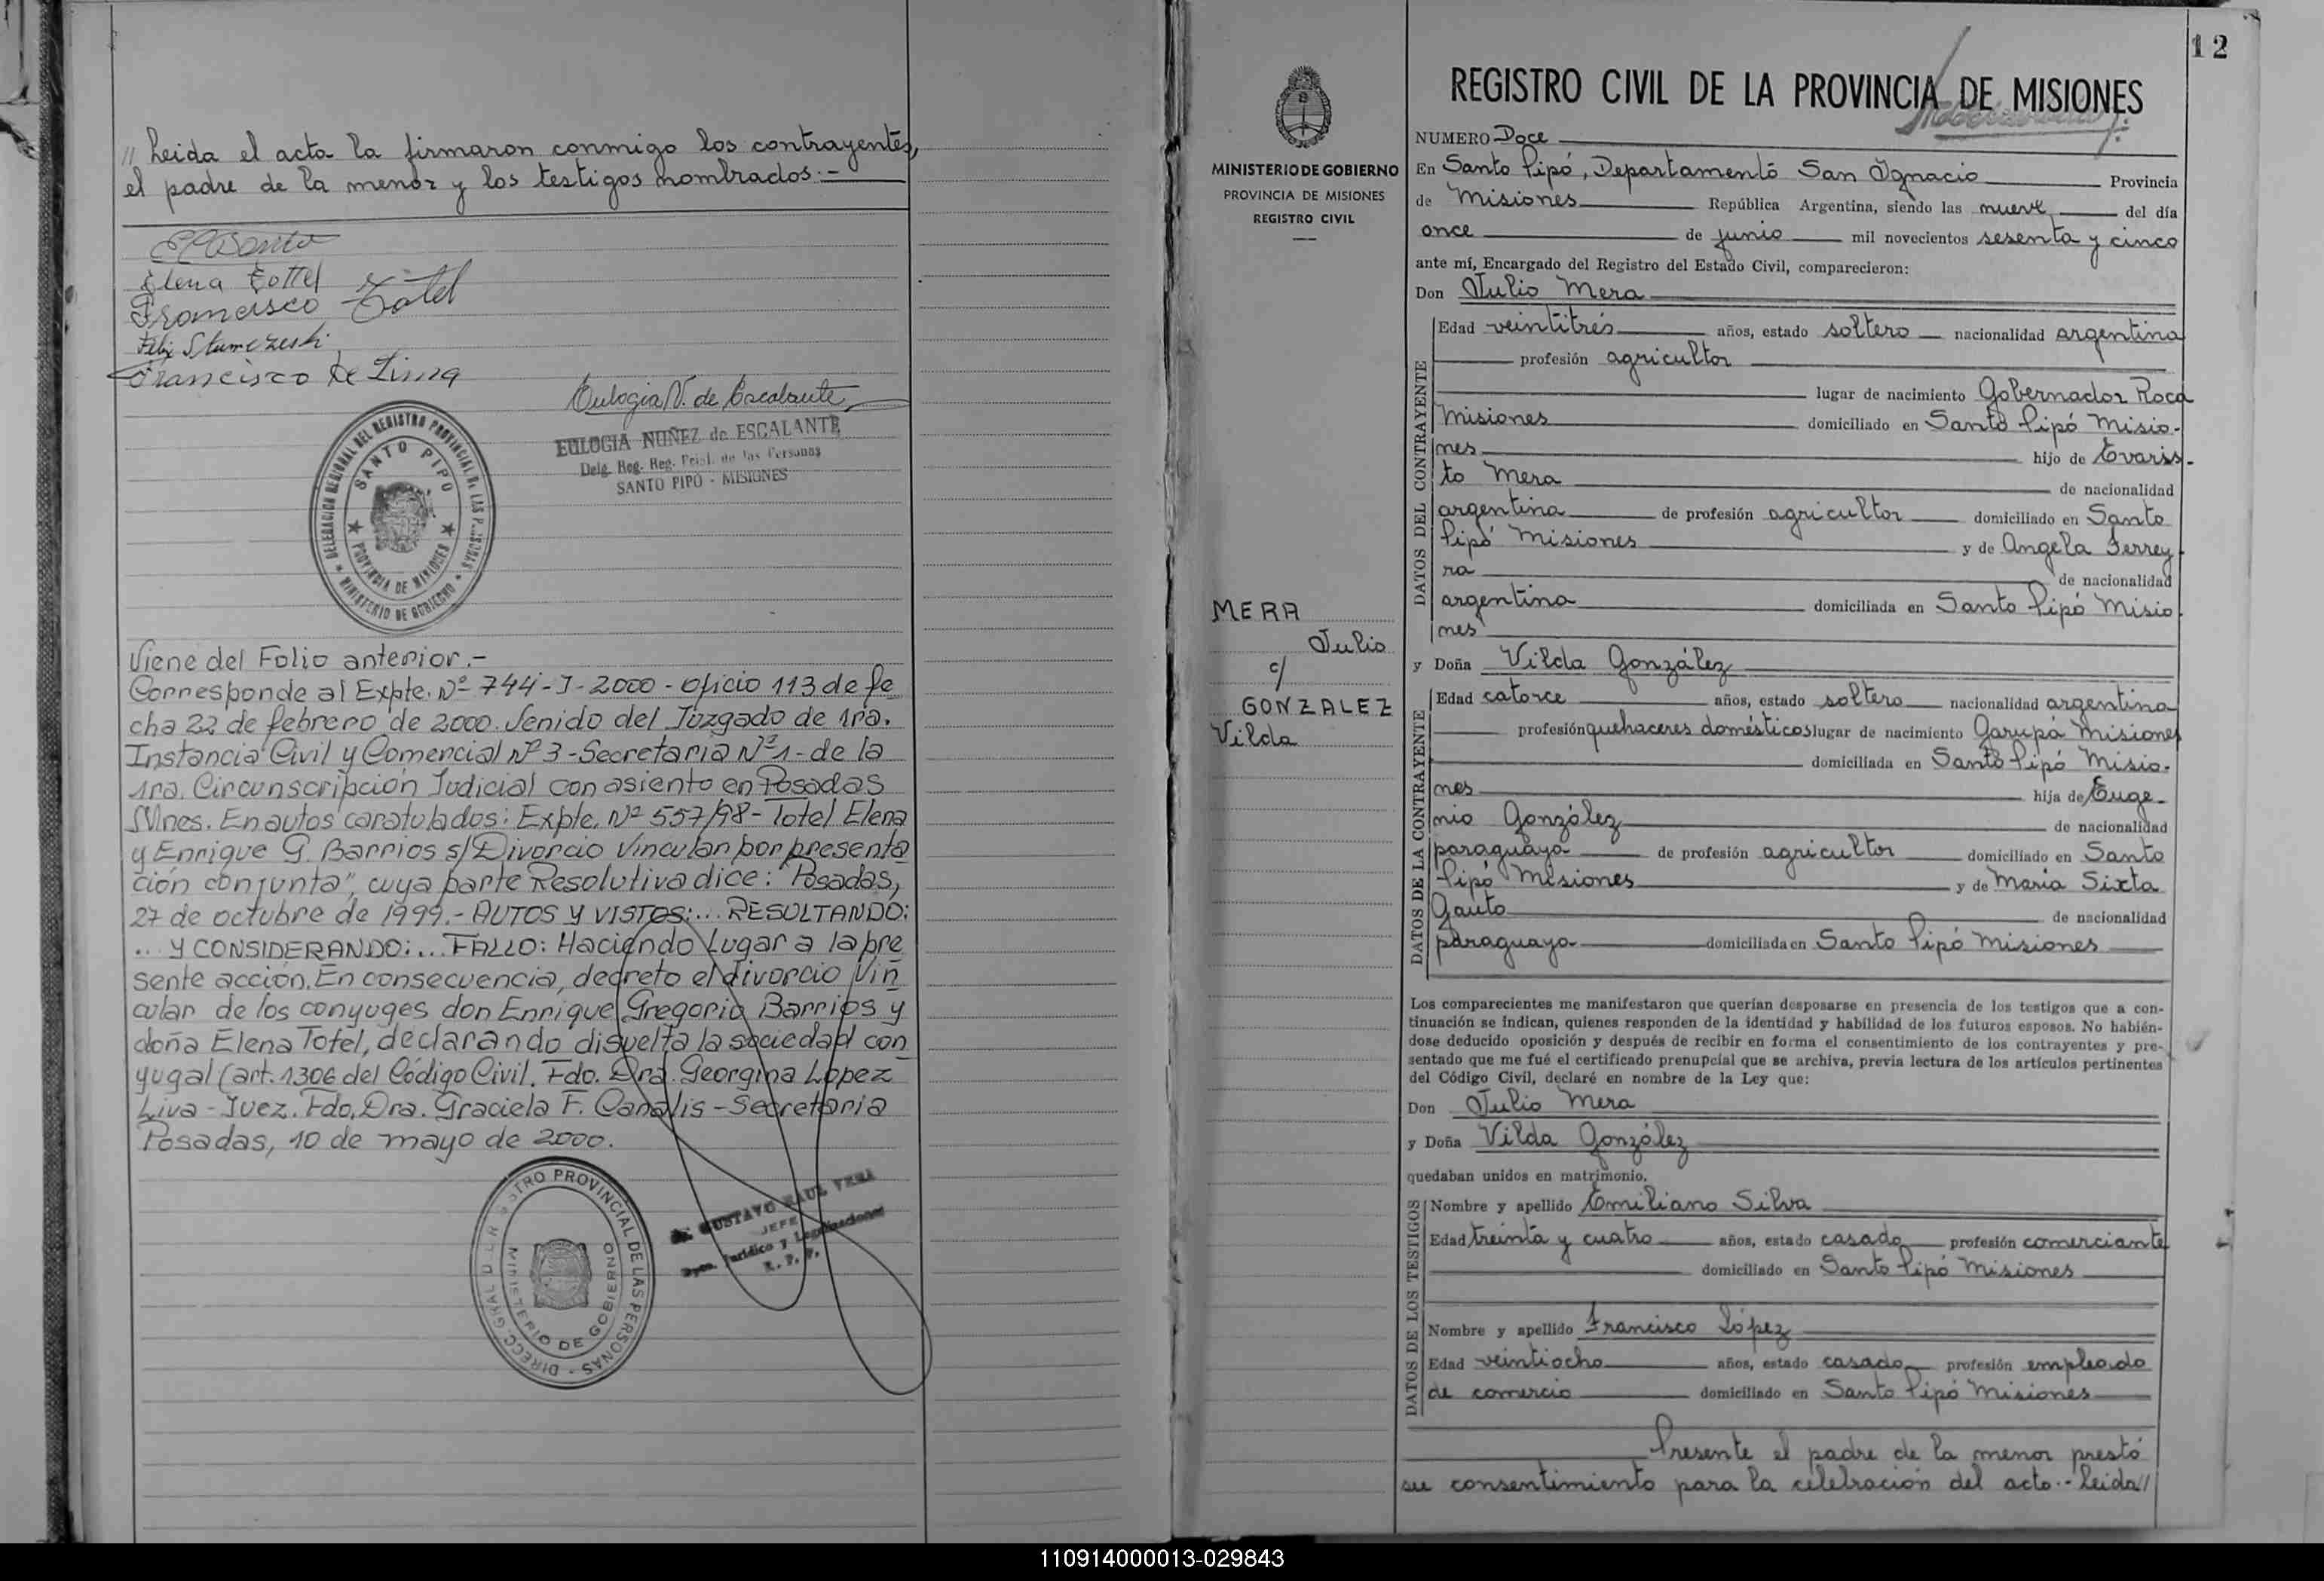 // Leida el acta la firmaron conmigo los contrayentes,
el padre de la menor y los testigos nombrados.-
Elena Tottel
Francisco Totel
Felix
Francisco de Lima
Eulogia N. de Escalante
EULOGIA NUÑEZ de ESCALANTE
Delg. Reg. Reg. Pcial. de las Personas
SANTO PIPÓ - MISIONES
DELEGACION REGIONAL DEL REGISTRO PROVINCIAL DE LAS PERSONAS
SANTO PIPO
PROVINCIA DE MISIONES
MINISTERIO DE GOBIERNO
Viene del Folio anterior.-
Corresponde al Expte. Nº 744-J-2000 - oficio 113 de fe
cha 22 de febrero de 2000. Venido del Juzgado de 1ra.
Instancia Civil y Comercial nº 3 - Secretaria Nº 1 - de la
1ra. Circunscripción Judicial con asiento en Posadas
Mnes. En autos caratulados: Expte. Nº 557/98 - Totel Elena
y Enrique G. Barrios s/ Divorcio Vincular por presenta
ción conjunta", cuya parte Resolutiva dice: "Posadas,
27 de octubre de 1999.- AUTOS Y VISTOS:... RESULTANDO:
... Y CONSIDERANDO:... FALLO: Haciendo Lugar a la pre
sente acción. En consecuencia, decreto el divorcio Vin
cular de los conyuges don Enrique Gregorio Barrios y
doña Elena Totel, declarando disuelta la sociedad con
yugal (art. 1306 del Código Civil. Fdo. Dra. Georgina López
Liva - Juez. Fdo. Dra. Graciela F. Canalis - Secretaria
Posadas, 10 de mayo de 2000.
DIRECC. GRAL DEL REGISTRO PROVINCIAL DE LAS PERSONAS
MINISTERIO DE GOBIERNO
GUSTAVO RAUL VERA
JEFE
Dpto. Jurídico y Legalizaciones
R. P. P.
12
REGISTRO CIVIL DE LA PROVINCIA DE MISIONES
MINISTERIO DE GOBIERNO
PROVINCIA DE MISIONES
REGISTRO CIVIL
MERA
Julio
c/
GONZALEZ
Vilda
NUMERO Doce
En Santo Pipó, Departamento San Ignacio Provincia
de Misiones República Argentina, siendo las nueve del día
once de junio mil novecientos sesenta y cinco
ante mí, Encargado del Registro del Estado Civil, comparecieron:
Don Julio Mera
DATOS DEL CONTRAYENTE
Edad veintitrés años, estado soltero nacionalidad argentina
profesión agricultor
lugar de nacimiento Gobernador Roca
Misiones domiciliado en Santo Pipó Misio-
nes hijo de Evaris-
to Mera de nacionalidad
argentina de profesión agricultor domiciliado en Santo
Pipó Misiones y de Angela Ferrey-
ra de nacionalidad
argentina domiciliada en Santo Pipó Misio-
nes
y Doña Vilda González
DATOS DE LA CONTRAYENTE
Edad catorce años, estado soltera nacionalidad argentina
profesión quehaceres domésticos lugar de nacimiento Garupá Misiones
domiciliada en Santo Pipó Misio-
nes hija de Euge-
nio González de nacionalidad
paraguaya de profesión agricultor domiciliado en Santo
Pipó Misiones y de María Sixta
Gauto de nacionalidad
paraguaya domiciliada en Santo Pipó Misiones
Los comparecientes me manifestaron que querían desposarse en presencia de los testigos que a con-
tinuación se indican, quienes responden de la identidad y habilidad de los futuros esposos. No habién-
dose deducido oposición y después de recibir en forma el consentimiento de los contrayentes y pre-
sentado que me fué el certificado prenupcial que se archiva, previa lectura de los artículos pertinentes
del Código Civil, declaré en nombre de la Ley que:
Don Julio Mera
y Doña Vilda González
quedaban unidos en matrimonio.
DATOS DE LOS TESTIGOS
Nombre y apellido Emiliano Silva
Edad treinta y cuatro años, estado casado profesión comerciante
domiciliado en Santo Pipó Misiones
Nombre y apellido Francisco López
Edad veintiocho años, estado casado profesión empleado
de comercio domiciliado en Santo Pipó Misiones
Presente el padre de la menor prestó
su consentimiento para la celebración del acto.- Leida//
110914000013-029843